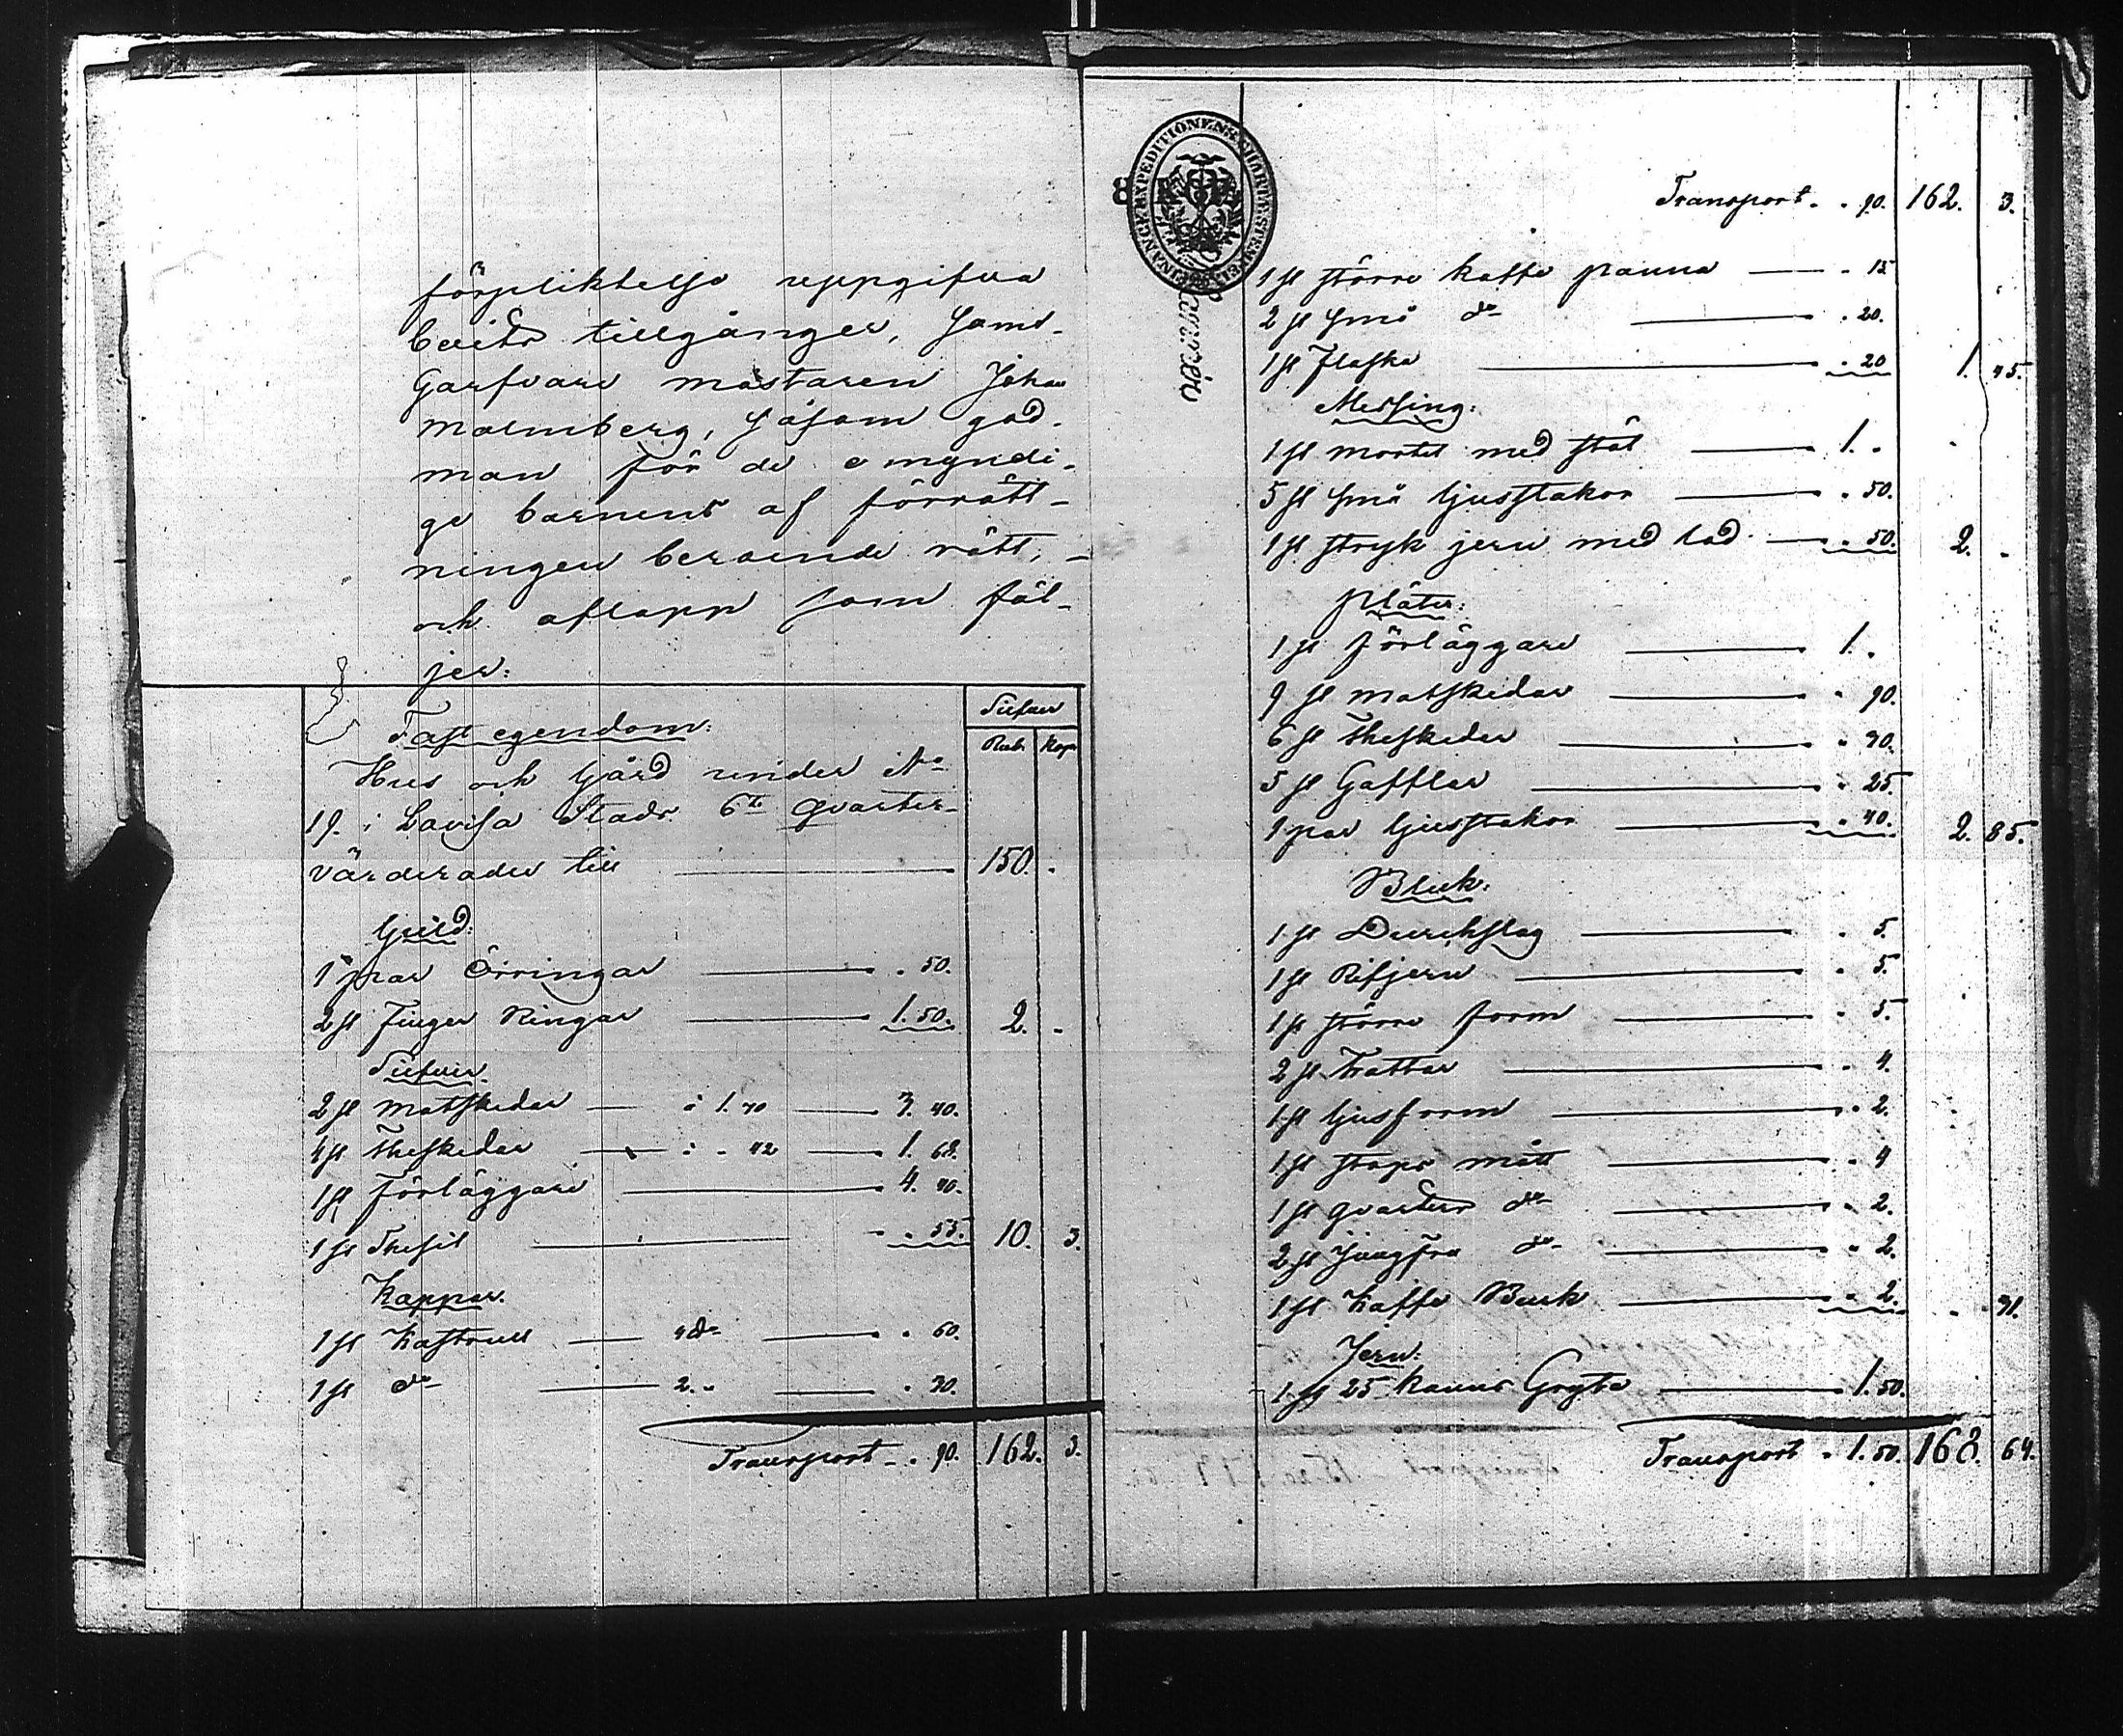 förpliktelse uppgifva
boets tillgångar, samt
Garfvare mästaren Johan
Malmberg, såsom god
man för de omyndi-
ge barnens af förrätt-
ningen beroende rätt, –
och aflopp som föl-
jer:
Silfver
Rub. Kop.
Fast egendom:
Hus och Gård under No
19. i Lovisa Stads 6te qvarter
värderades till 150. .
Guld:
1 par Örringar . 50.
2 st Finger Ringar 1. 50. 2. .
Silfver.
2 st Matskedar à 1. 70 3. 40.
4 st Theskedar à . 42 1. 68.
1 st Förläggare 4. 40.
1 st Thesil . 55. 10. 3.
Koppar.
1 st Kastrull 4 ℔ . 60.
1 st do 2. " . 30.
Transport . 90. 162. 3.
Transport . 90. 162. 3.
1 st större kaffe panna . 15
2 st små do . 20.
1 st Flaska . 20 1. 45.
Messing:
1 st mortel med stöt 1. .
5 st små ljusstakar . 50.
1 st stryk jern med lod . 50. 2. .
Pläter:
1 st förläggare 1. .
9 st matskedar . 90.
6 st Theskedar . 30.
5 st Gafflar . 25
1 par ljusstakar . 40. 2. 85.
Bleck:
1 st Durchslag . 5.
1 st Rifjern . 5.
1 st större form . 5.
2 st Trattar . 4.
1 st ljusform . 2.
1 st stops mått . 4
1 st qvarters do . 2.
2 st Jungfru do . 2.
1 st Kaffe Burk . 2. . 31.
Jern:
1 st 25 kanns Gryta 1. 50.
Transport . 1. 50. 168. 64.